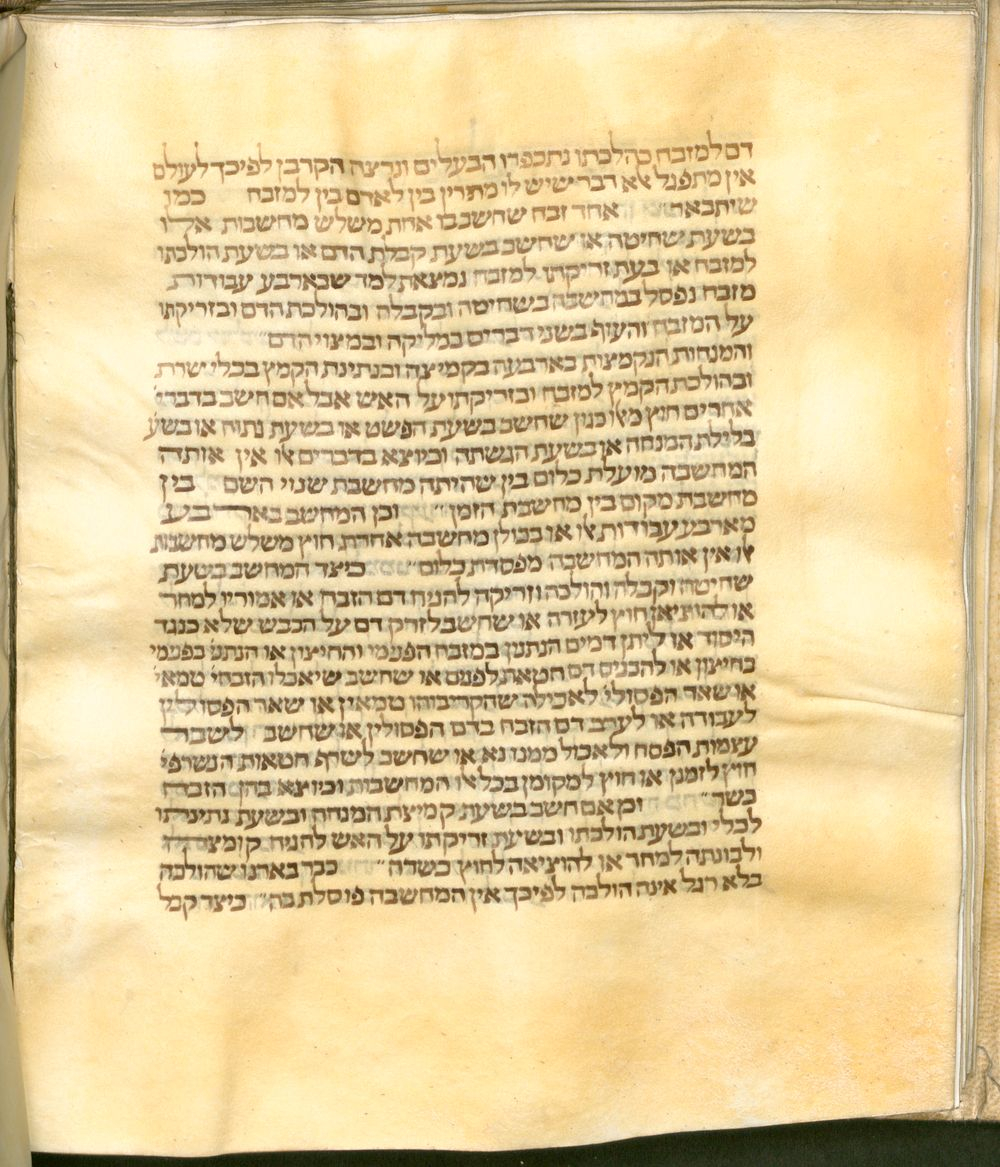 דם למזבח כהלכתו נתכפרו הבעלים ונרצה הקרבן לפיכך לעולם
אין מתפגל אלא דבר שיש לו מתרין בין לאדם בין למזבח כמו
שיתבאר אחד זבח שחשב בו אחת משלש מחשבות אלו
בשעת שחיטה או שחשב בשעת קבלת הדם או בשעת הולכתו
למזבח או בעת זריקתו למזבח נמצאת למד שבארבע עבודות
מזבח נפסל במחשבה בשחיטה ובקבלה ובהולכת הדם ובזריקתו
על המזבח והעוף בשני דברים במליקה ובמצוי הדם
והמנחות הנקמצות בארבעה בקמיצה ובנתינת הקמץ בכלי שרת
ובהולכת הקמץ למזבח ובזריקתו על האש אבל אם חשב בדברי
אחרים חוץ מאלו כגון שחשב בשעת הפשט או בשעת נתוח או בשע
בלילת המנחה או בשעת הגשתה וכיוצא בדברים אלו אין אותה
המחשבה מועלת כלום בין שהיתה מחשבת שנוי השם בין
מחשבת מקום בין מחשבת הזמן וכן המחשב בארבע
מארבע עבודות אלו או בכולן מחשבה אחרת חוץ משלש מחשבות
אלו אין אותה המחשבה מפסדת כלום כיצד המחשב בשעת
שחיטה וקבלה והולכה וזריקה להניח דם הזבח או אמוריו למחר
או להוציאן חוץ לעזרה או שחשב לזרק דם על הכבש שלא כנגד
היסוד או ליתן דמים הנתנין במזבח הפנימי והחיצון או הנתני בפנימי
בחיצון או להכניס דם חטאת לפנים או שחשב שיאכלו הזבחי טמאי
או שאר הפסולי לאכילה שהקריבוהו טמאין או שאר הפסולין
לעבודה או לערב דם הזבח בדם הפסולין או שחשב לשבר
עצמות הפסח ולאכול ממנו נא או שחשב לשרף חטאות הנשרפי
חוץ לזמנן או חוץ למקומן בכל אלו המחשבות וכיוצא בהן הזבח
כשר וכן אם חשב בשעת קמיצת המנחה ובשעת נתינתו
לכלי ובשעת הולכתו ובשעת זריקתו על האש להניח קומצה
ולבונתה למחר או להוציאה לחוץ כשרה כבר בארנו שהולכה
בלא רגל אינה הולכה לפיכך אין המחשבה פוסלת בה כיצד קבל